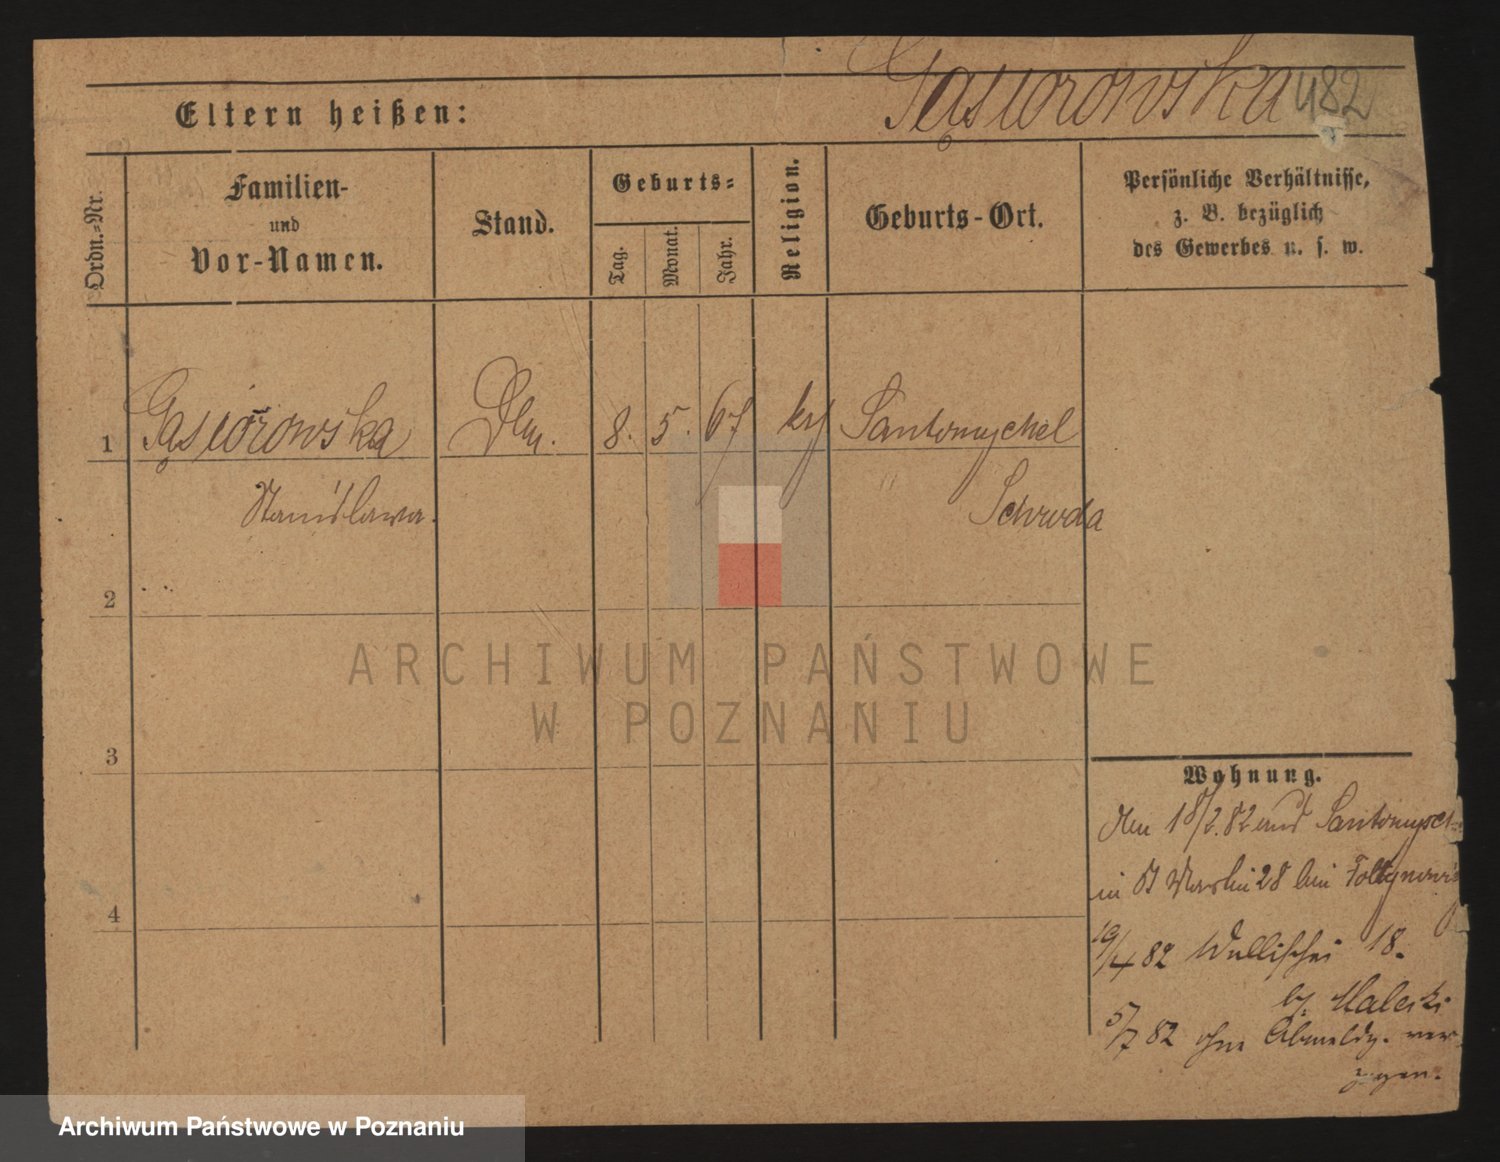 Gąsiorowska 482
Eltern heißen:
Ordn.-Nr.
Familien-
und
Vor-Namen.
Stand.
Geburts-
Tag.
Monat.
Jahr.
Religion.
Geburts-Ort.
Persönliche Verhältnisse,
z. B. bezüglich
des Gewerbes u. s. w.
1 Gąsiorowska 8. 5. 67 Santomychel
Stanislawa. Schroda
2
3
4
Wohnung.
den 18/2.82 aus Santomysch
in St Martin 28 bei
19/4 82 Wallischei 18.
by. Maleski
5/7 82 ohne Abmeldg. ver
zogen.
ARCHIWUM PAŃSTWOWE
W POZNANIU
Archiwum Państwowe w Poznaniu